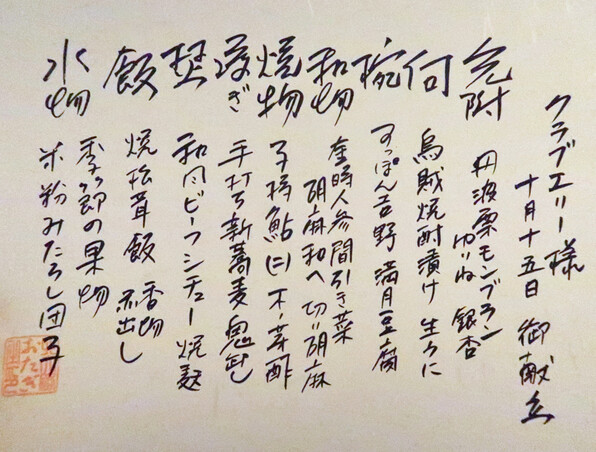 クラブエリー様
十月十五日 御献立
先附
丹波栗モンブラン
ゆりね 銀杏
向
烏賊焼酎漬け 生うに
椀
すっぽん吉野 満月豆腐
和物
金時人参間引き菜
胡麻和へ 切り胡麻
焼物
子持鮎 木ノ芽酢
凌ぎ
手打ち新蕎麦 鬼卸し
焚
和風ビーフシチュー 焼麸
飯
焼松茸飯 香物 赤出し
水物
季節の果物
米粉みたらし団子
おたぎ